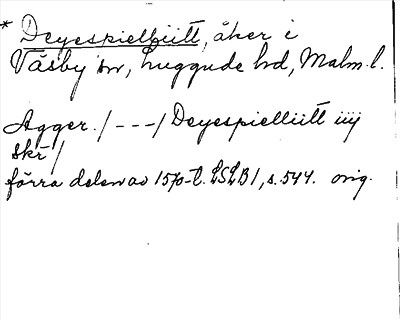 * Deyespielliitt, åker i
Väsby sn, Luggude hd, Malm. l.
Agger. / - - - / Deyespielliitt iiij
skr /
förra delen av 1570-t. LSLB 1, s. 544. orig.